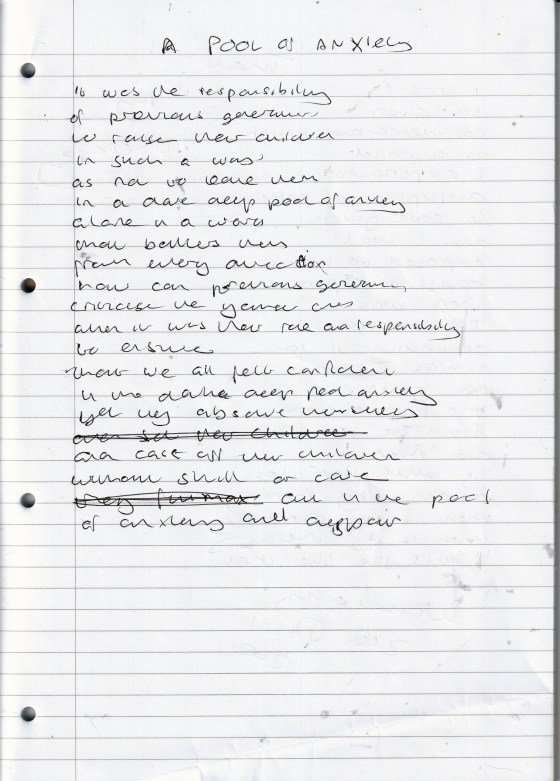 A POOL OF ANXIETY
it was the responsibility
of previous generations
to raise their children
in such a way
as not to leave them
in a dark deep pool of anxiety
alone in a world
that batters them
from every direction
how can previous generations
criticise the younger ones
when it was their role and responsibility
to ensure
that we all felt confident
in the dark deep pool anxiety
yet they absolve themselves
and cast off their children
without skill or care
all in the pool
of anxiety and despair